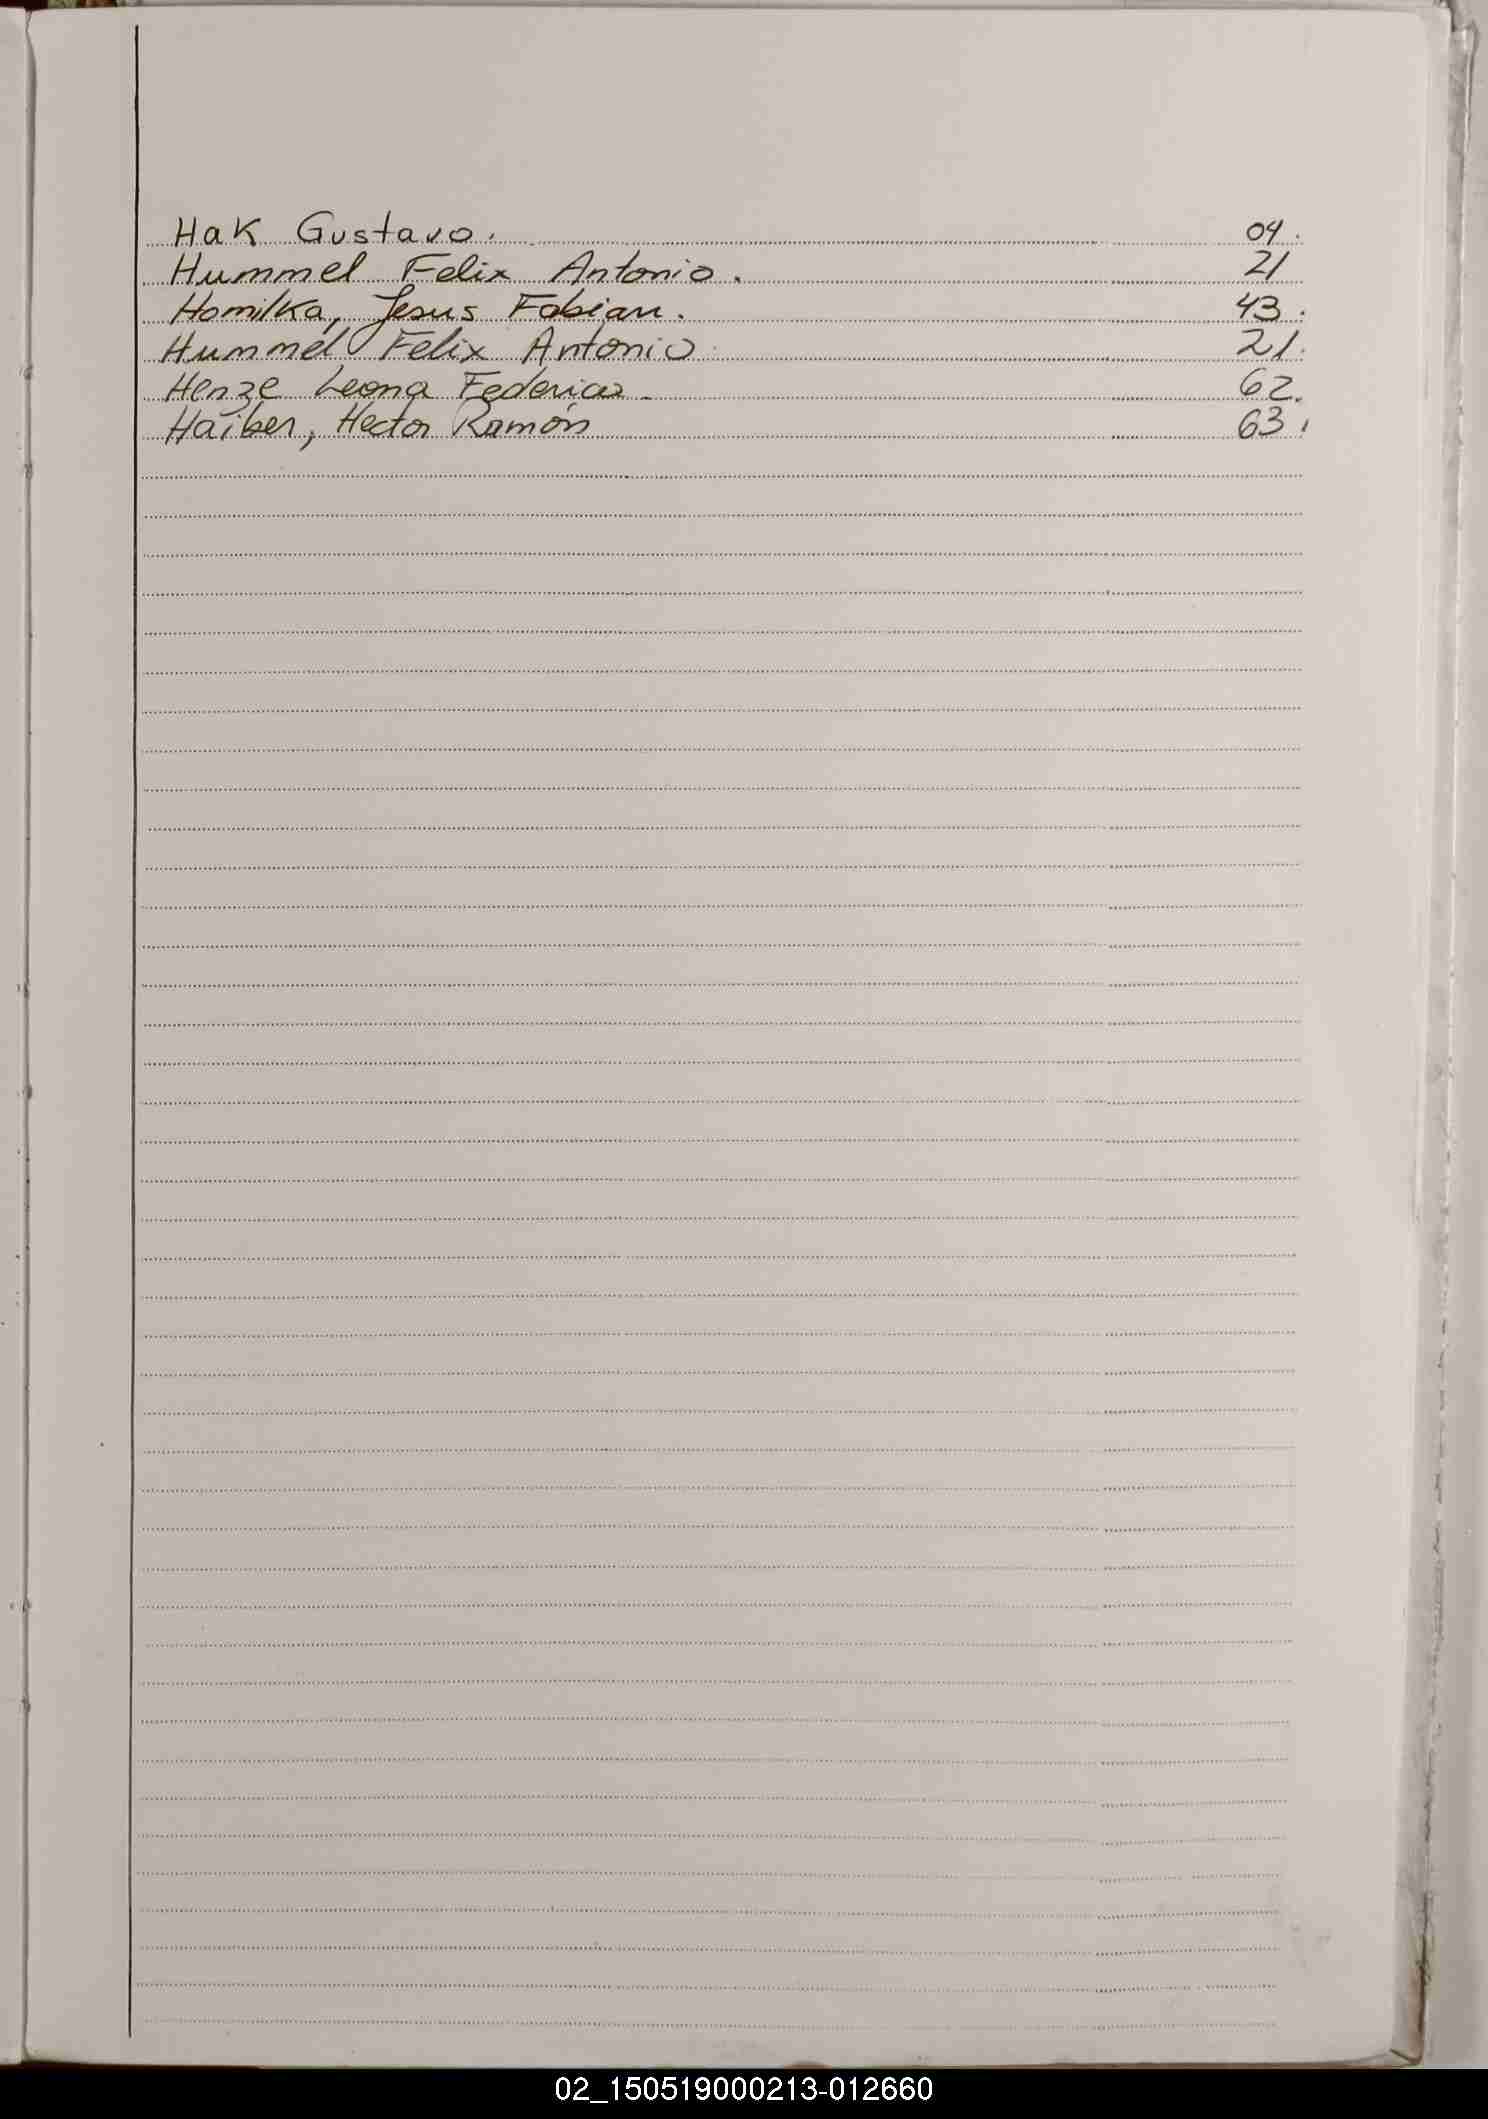 Hak Gustavo. 04.
Hummel Felix Antonio. 21
Homilka, Jesus Fabian. 43.
Hummel Felix Antonio 21.
Henze Leona Federica. 62.
Haiber, Hector Ramón 63.
02_150519000213-012660